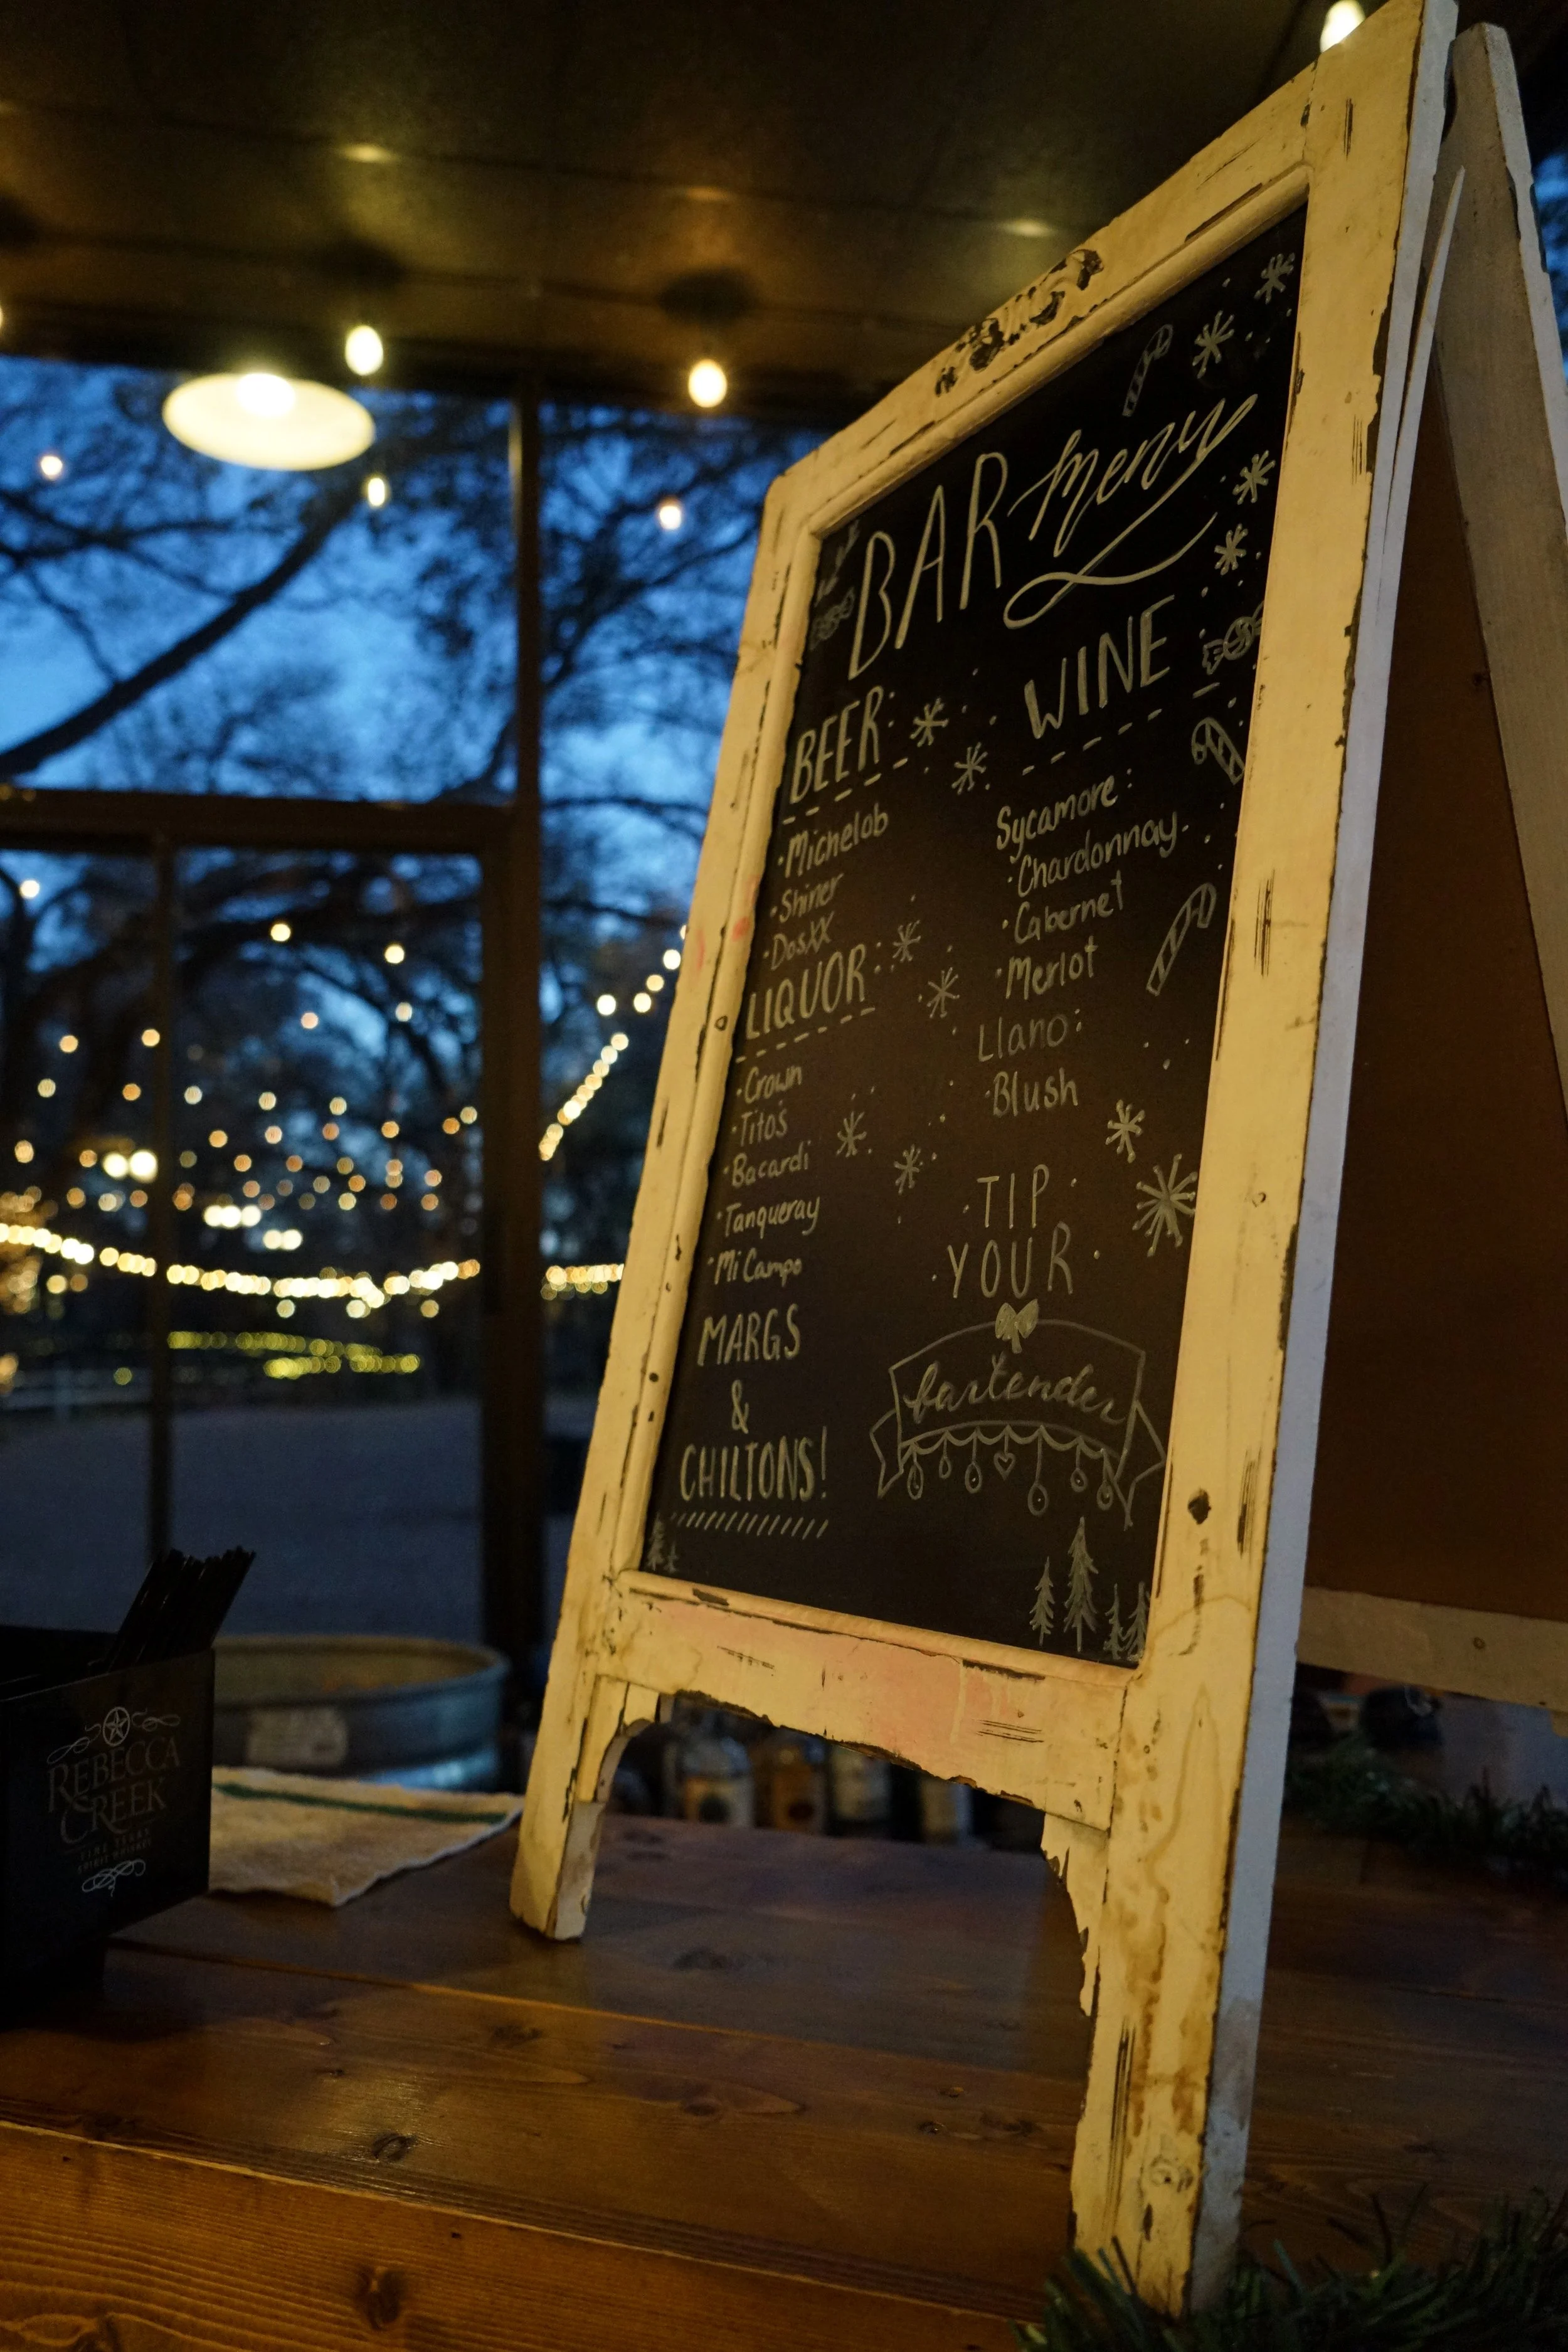 BAR Menu
BEER
· Michelob
· Shiner
· DosXX
LIQUOR
· Crown
· Tito's
· Bacardi
· Tanqueray
· Mi Campo
MARGS
&
CHILTONS!
WINE
Sycamore:
· Chardonnay
· Cabernet
· Merlot
Llano:
· Blush
TIP
YOUR
bartender
REBECCA
CREEK